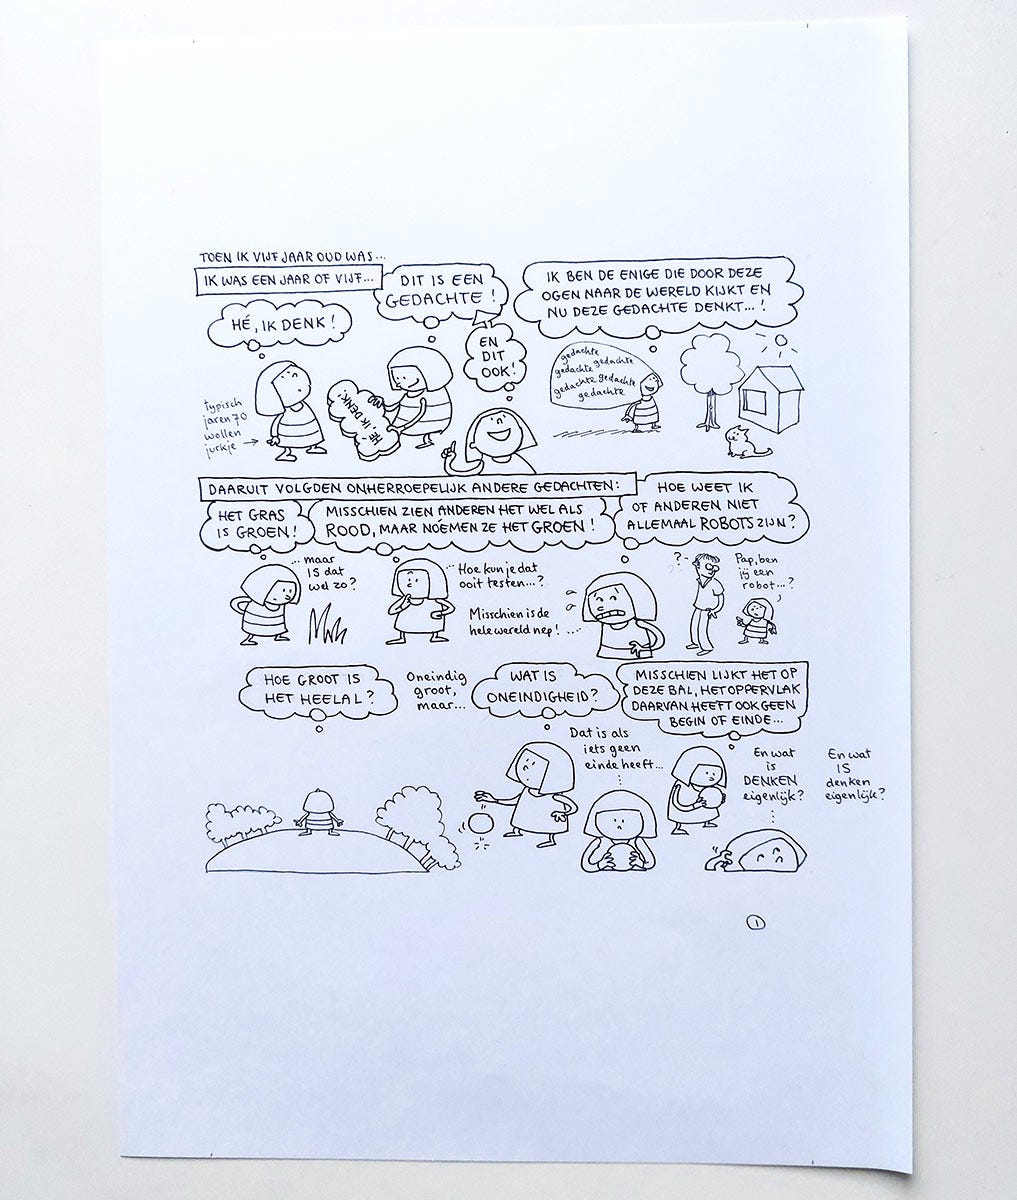 TOEN IK VIJF JAAR OUD WAS...
IK WAS EEN JAAR OF VIJF...
HÉ, IK DENK!
DIT IS EEN
GEDACHTE!
HÉ, IK DENK!
EN
DIT
OOK!
IK BEN DE ENIGE DIE DOOR DEZE
OGEN NAAR DE WERELD KIJKT EN
NU DEZE GEDACHTE DENKT...!
gedachte
gedachte gedachte
gedachte gedachte
gedachte
typisch
jaren 70
wollen
jurkje
DAARUIT VOLGDEN ONHERROEPELIJK ANDERE GEDACHTEN:
HET GRAS
IS GROEN!
... maar
IS dat
wel zo?
MISSCHIEN ZIEN ANDEREN HET WEL ALS
ROOD, MAAR NOÉMEN ZE HET GROEN!
Hoe kun je dat
ooit testen...?
Misschien is de
hele wereld nep!
HOE WEET IK
OF ANDEREN NIET
ALLEMAAL ROBOTS ZIJN?
?
Pap, ben
jij een
robot...?
HOE GROOT IS
HET HEELAL?
Oneindig
groot,
maar...
WAT IS
ONEINDIGHEID?
Dat is als
iets geen
einde heeft...
MISSCHIEN LIJKT HET OP
DEZE BAL, HET OPPERVLAK
DAARVAN HEEFT OOK GEEN
BEGIN OF EINDE...
En wat
is
DENKEN
eigenlijk?
En wat
IS
denken
eigenlijk?
1